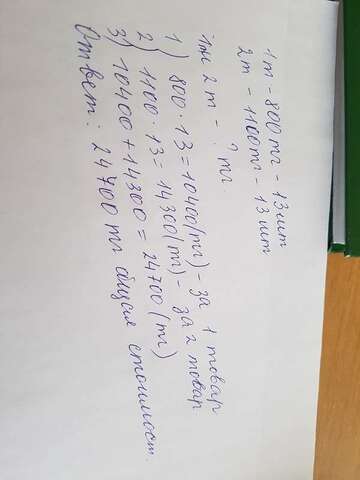 1т - 800тг - 13шт
2т - 1100тг - 13шт
1и 2 т - ? тг.
1) 800 · 13 = 10400(тг) - за 1 товар
2) 1100 · 13 = 14300(тг) - за 2 товар.
3) 10400 + 14300 = 24700 (тг)
Ответ: 24700 тг общая стоимост.